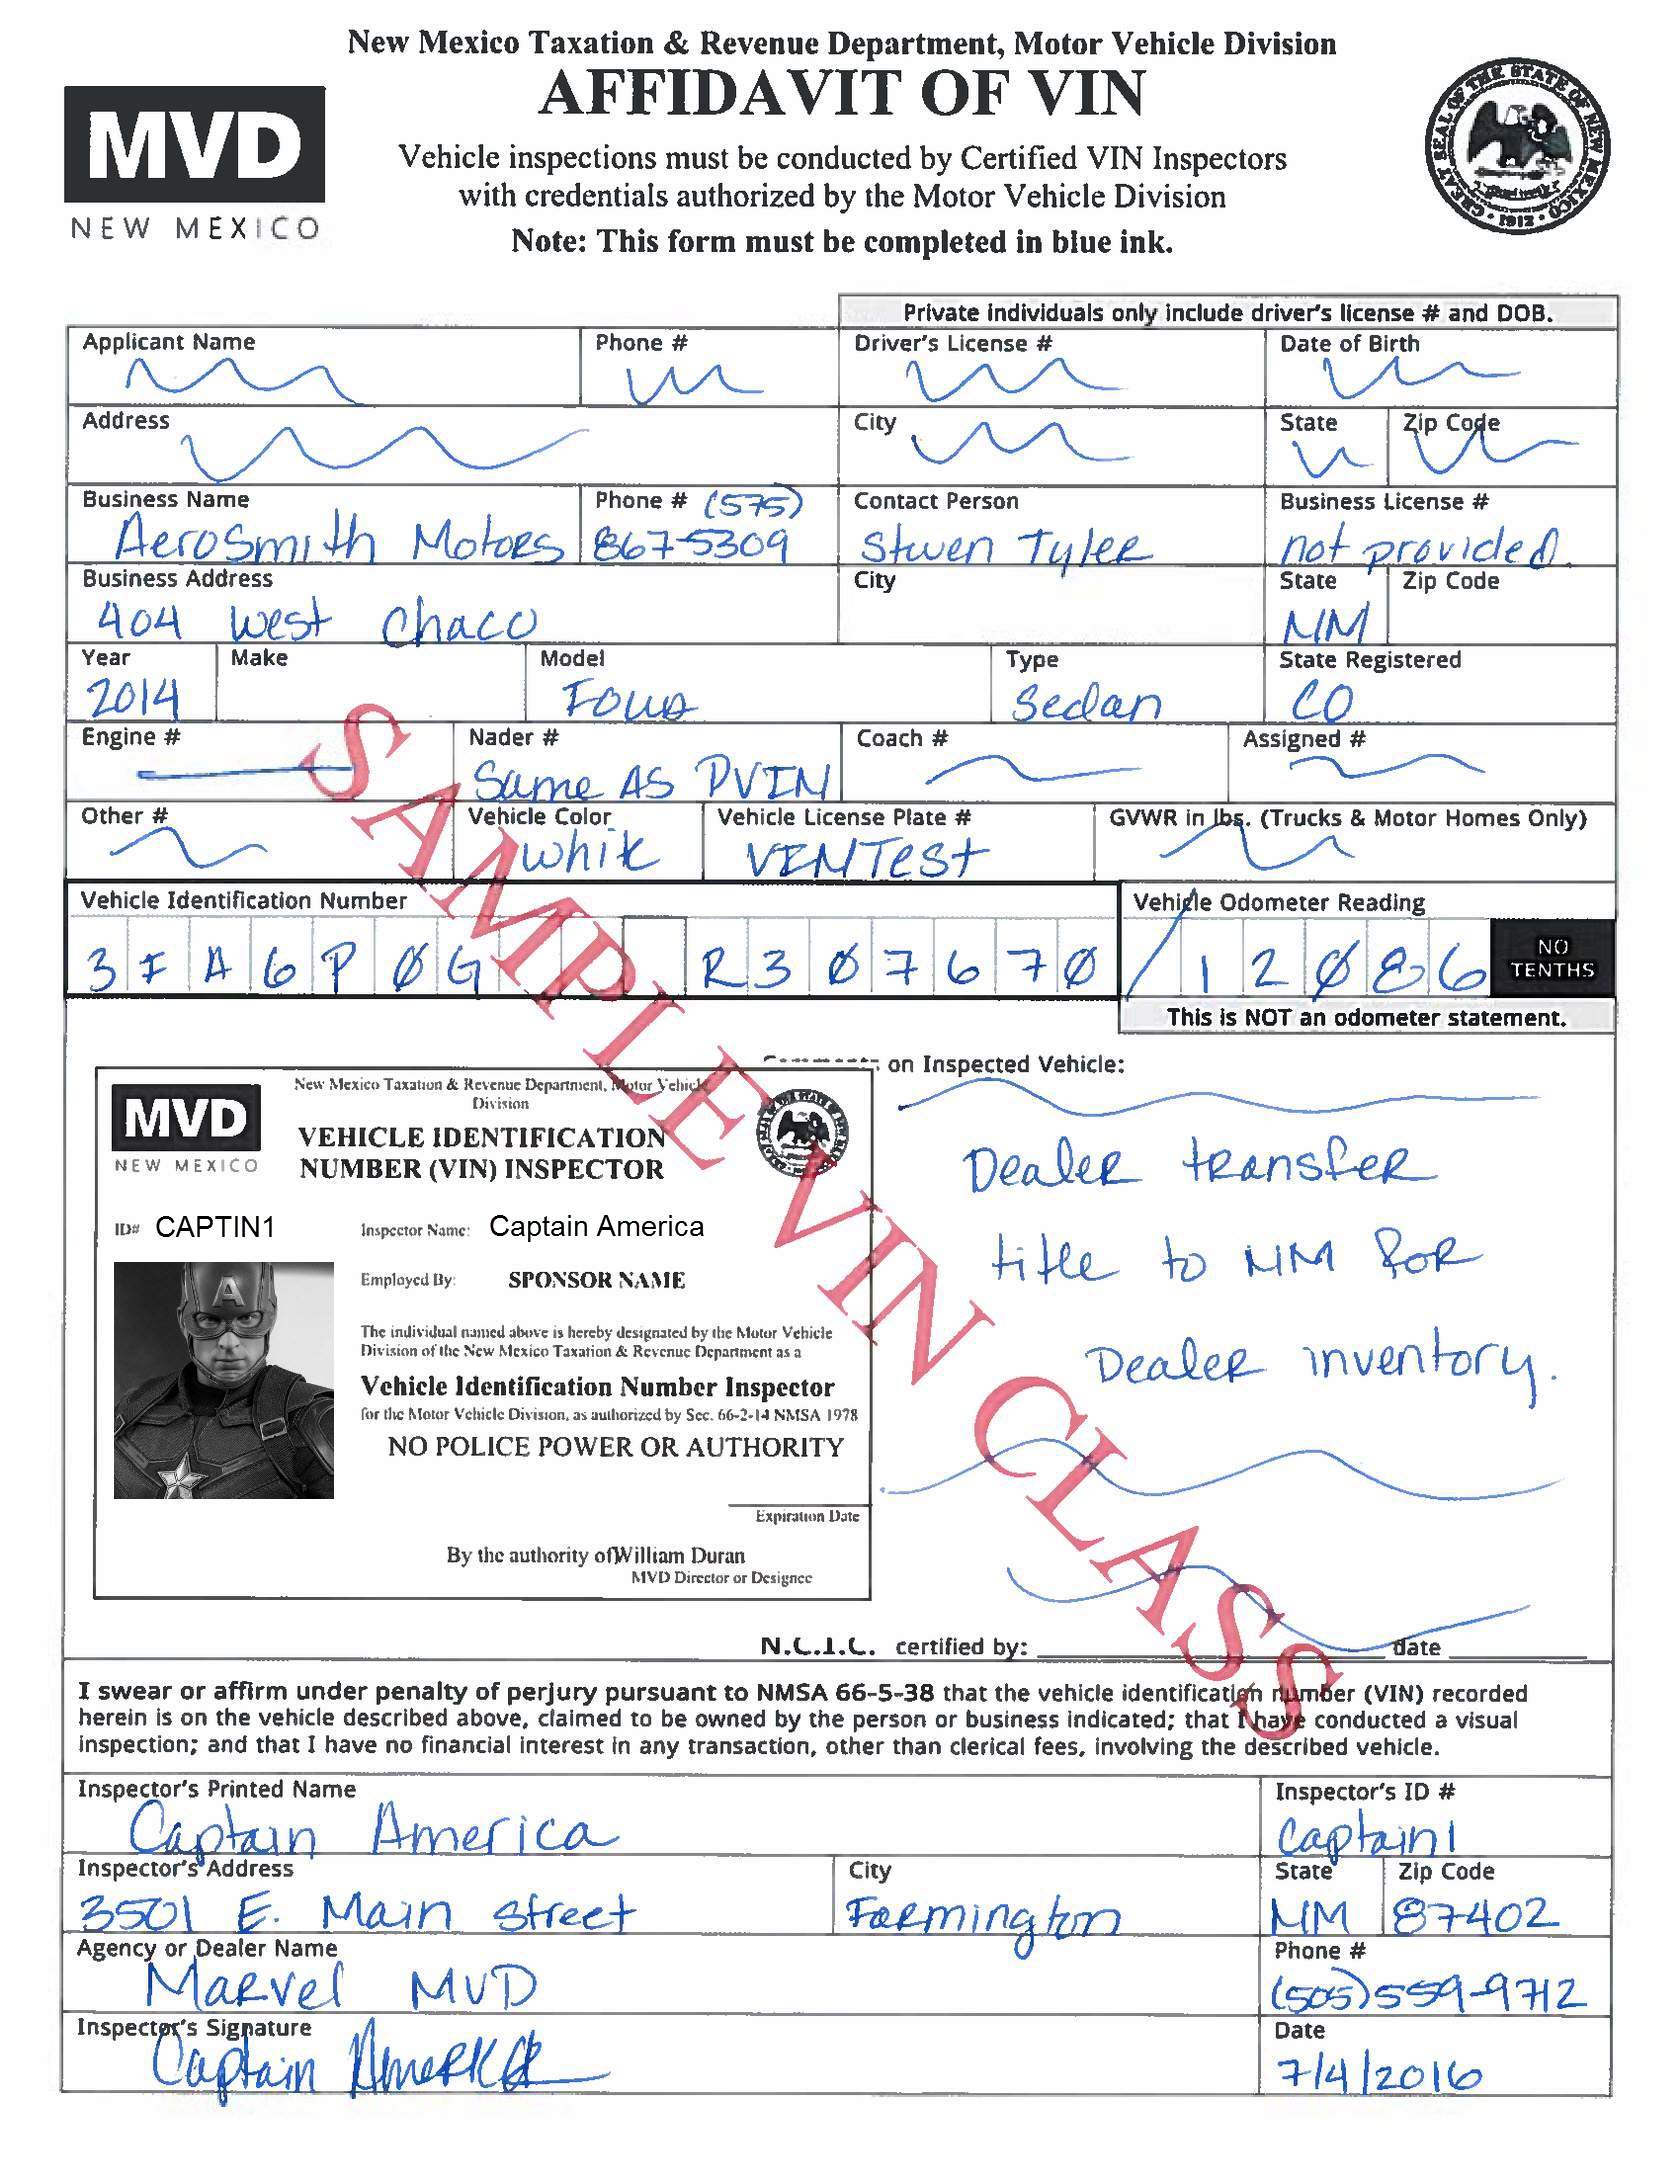 New Mexico Taxation & Revenue Department, Motor Vehicle Division
AFFIDAVIT OF VIN
MVD
NEW MEXICO
Vehicle inspections must be conducted by Certified VIN Inspectors
with credentials authorized by the Motor Vehicle Division
Note: This form must be completed in blue ink.
GREAT SEAL OF THE STATE OF NEW MEXICO • 1912 •
Private individuals only include driver's license # and DOB.
Applicant Name Phone # Driver's License # Date of Birth
Address City State Zip Code
Business Name Phone # (575) Contact Person Business License #
AeroSmith Motors 867-5309 Stven Tyler not provided.
Business Address City State Zip Code
404 West Chaco NM
Year Make Model Type State Registered
2014 Sedan CO
Engine # Nader # Coach # Assigned #
Same AS PVIN
Other # Vehicle Color Vehicle License Plate # GVWR in lbs. (Trucks & Motor Homes Only)
White VINTest
Vehicle Identification Number Vehicle Odometer Reading
3FA6P0G R307670 / 12086 NO TENTHS
This is NOT an odometer statement.
on Inspected Vehicle:
Dealer transfer
title to NM for
Dealer inventory.
New Mexico Taxation & Revenue Department, Motor Vehicle
Division
MVD
NEW MEXICO
VEHICLE IDENTIFICATION
NUMBER (VIN) INSPECTOR
ID# CAPTIN1 Inspector Name: Captain America
Employed By: SPONSOR NAME
The individual named above is hereby designated by the Motor Vehicle
Division of the New Mexico Taxation & Revenue Department as a
Vehicle Identification Number Inspector
for the Motor Vehicle Division, as authorized by Sec. 66-2-14 NMSA 1978
NO POLICE POWER OR AUTHORITY
Expiration Date
By the authority of William Duran
MVD Director or Designee
SAMPLE VIN CLASS
N.C.I.C. certified by: date
I swear or affirm under penalty of perjury pursuant to NMSA 66-5-38 that the vehicle identification number (VIN) recorded
herein is on the vehicle described above, claimed to be owned by the person or business indicated; that I have conducted a visual
inspection; and that I have no financial interest in any transaction, other than clerical fees, involving the described vehicle.
Inspector's Printed Name Inspector's ID #
Captain America Captain1
Inspector's Address City State Zip Code
3501 E. Main Street Farmington NM 87402
Agency or Dealer Name Phone #
Marvel MVD (505)559-9712
Inspector's Signature Date
Captain America 7/4/2016